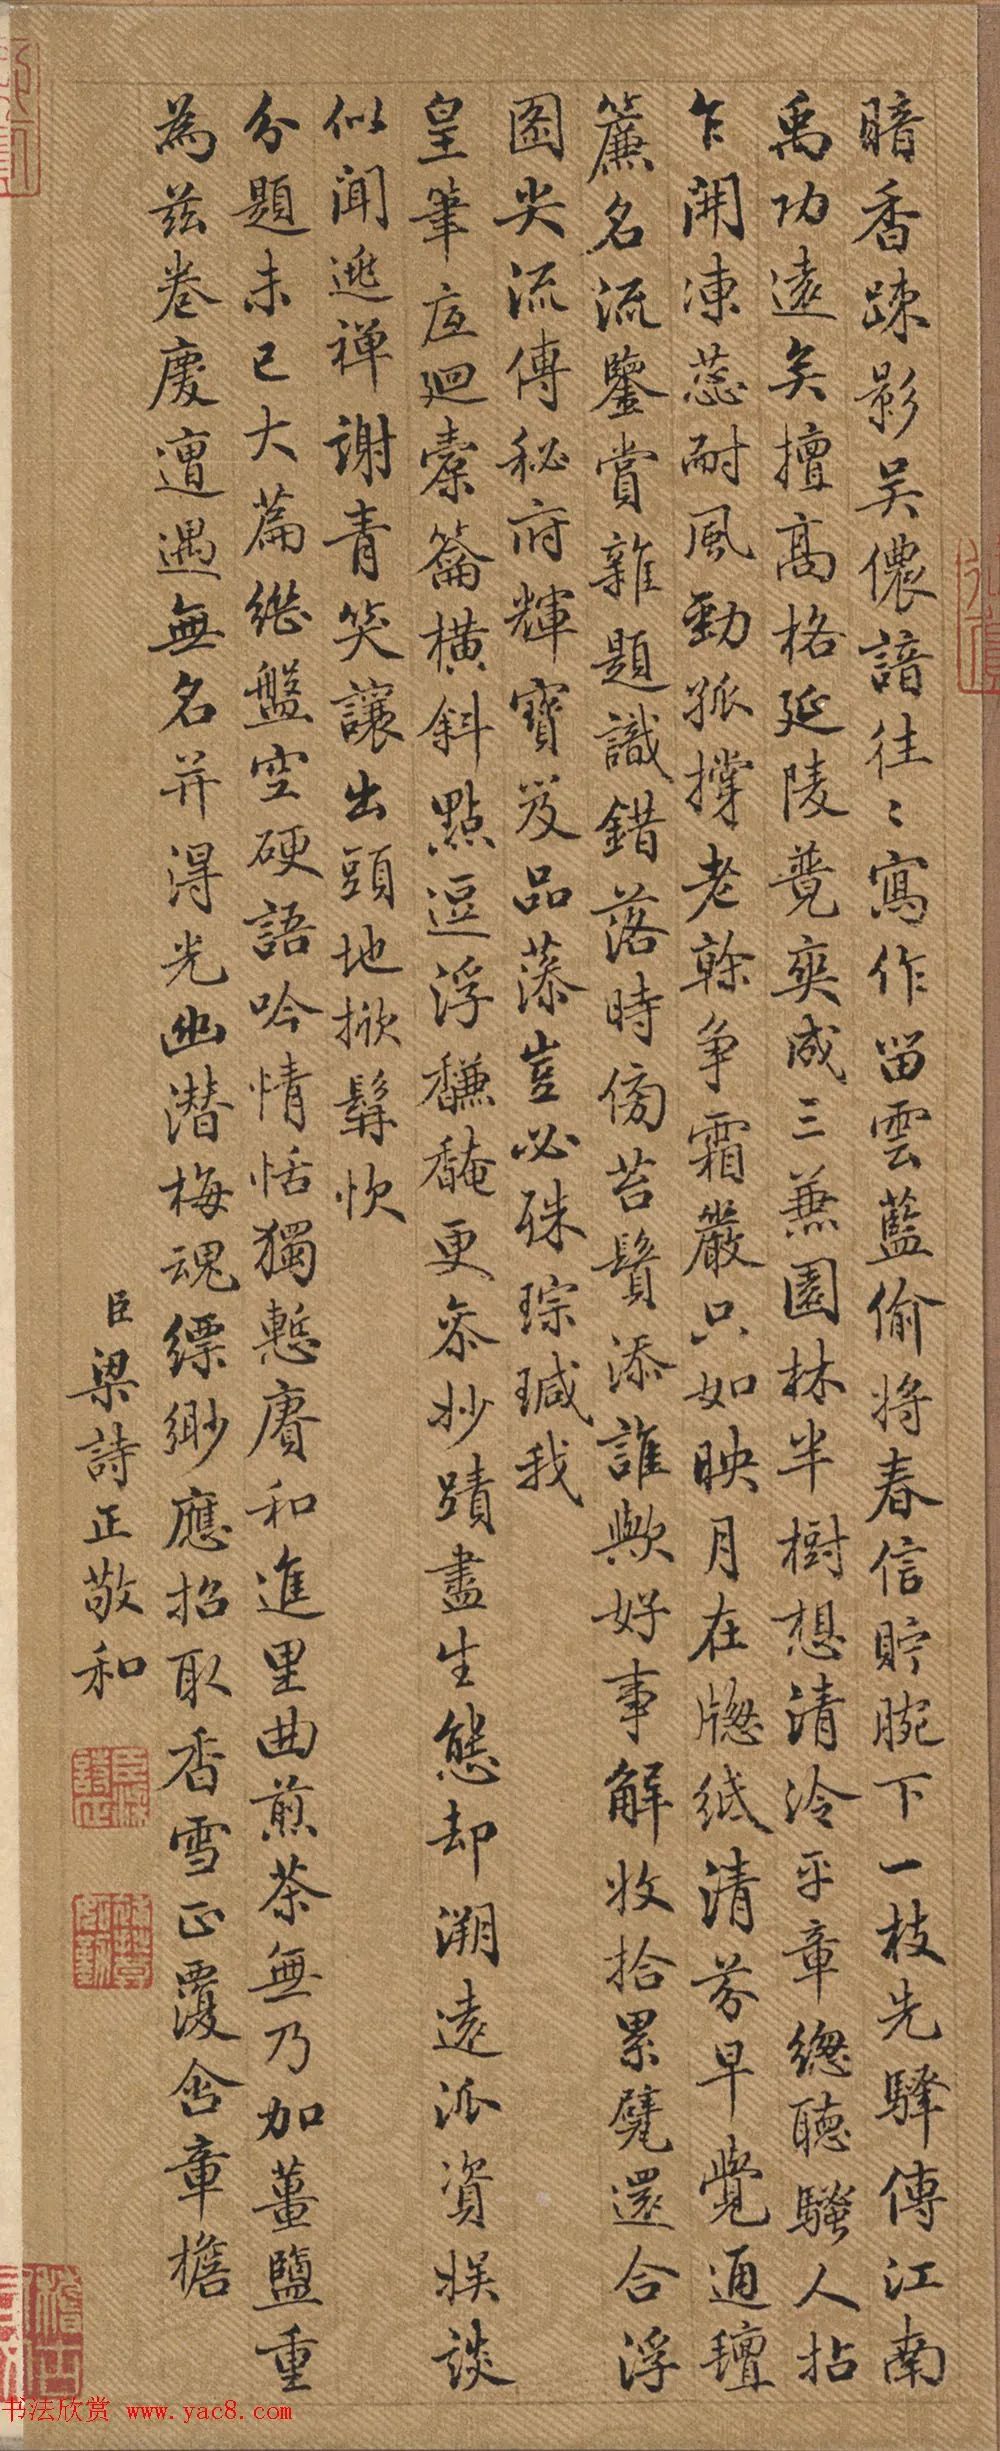 暗香疎影吴儂諳往〻寫作留雲藍偷将春信貯腕下一枝先驛傳江南
禹功遠矣擅髙格延陵竟爽成三兼園林半樹想清泠平章總聽騷人拈
乍開凍蕊耐風勁孤撑老榦争霜嚴只如映月在牕紙清芬早覺通氊
簾名流鑒賞雜題識錯落時傍苔鬢添誰歟好事解收拾累甓還合浮
圖尖流傳秘府輝寳笈品藻豈必硃琮瑊我
皇筆底迴橐籥橫斜點逗浮馦馣更叅抄蹟盡生態却溯遠派資娱談
似聞逃禅謝青笑讓出頭地掀髯忺
分題未已大篇繼盤空硬語吟情恬獨慙賡和進里曲煎茶無乃加薑鹽重
為兹卷慶遭遇無名并得光幽潜梅魂縹緲應招取香雪正覆含章檐
臣梁詩正敬和
书法欣赏 www.yac8.com